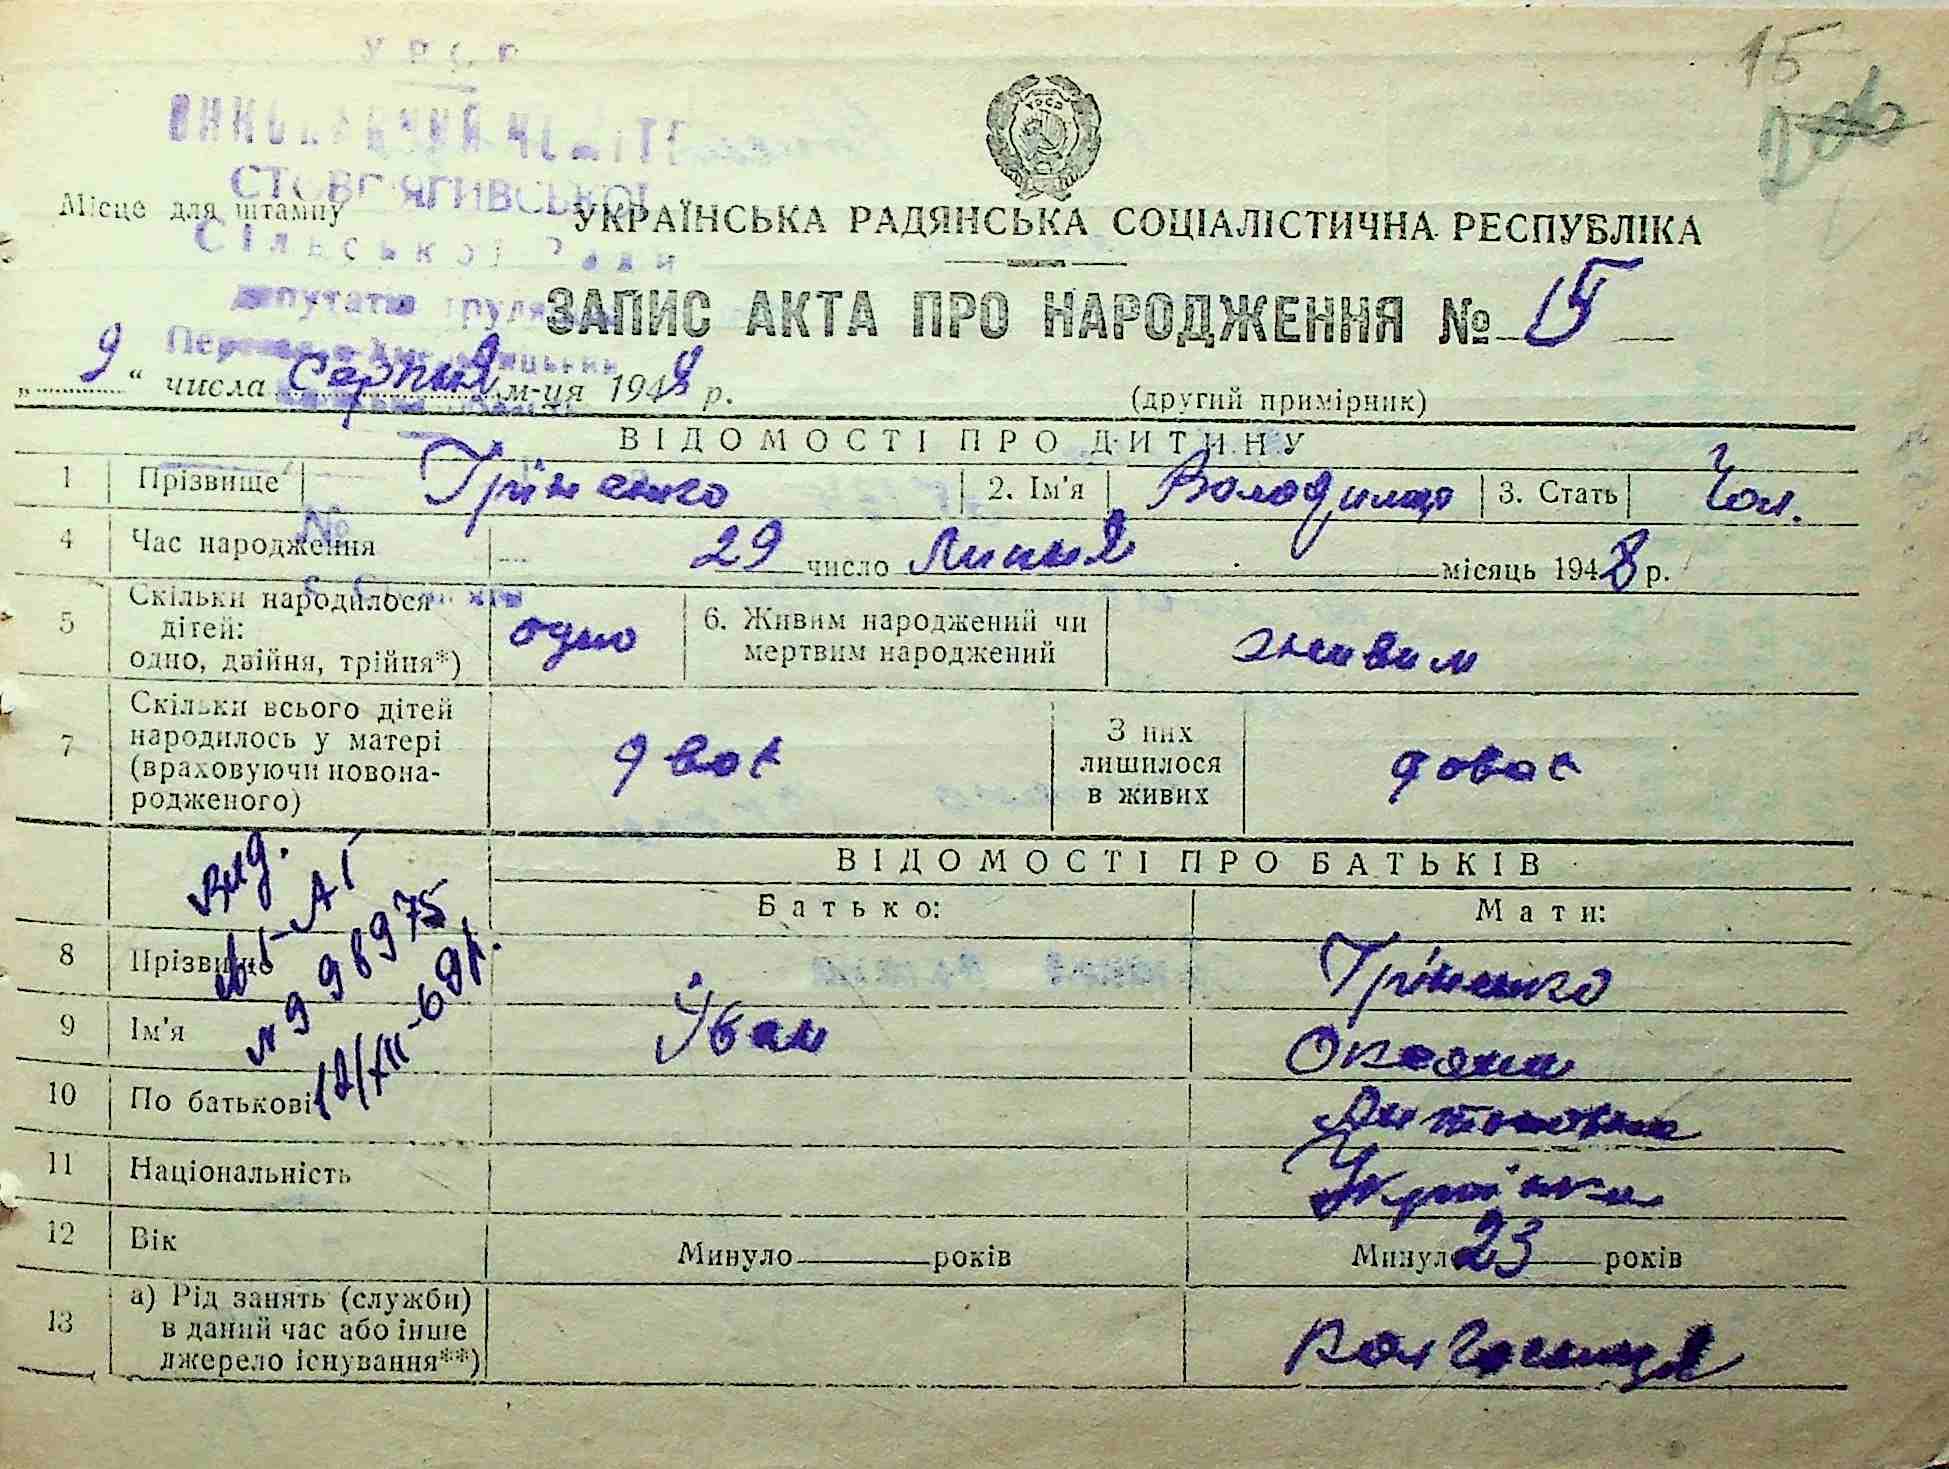 15
УРСР
ВИКОНАВЧИЙ КОМІТЕТ
СТОВП'ЯГИВСЬКОЇ
Сільської Ради
депутатів трудя
Місце для штампу
УКРАЇНСЬКА РАДЯНСЬКА СОЦІАЛІСТИЧНА РЕСПУБЛІКА
ЗАПИС АКТА ПРО НАРОДЖЕННЯ № 15
„9“ числа Серпня м-ця 1948 р.
(другий примірник)
ВІДОМОСТІ ПРО ДИТИНУ
1 Прізвище Гріненко 2. Ім'я Володимир 3. Стать Чол.
№
4 Час народження 29 число Липня місяць 1948 р.
5 Скільки народилося дітей: одно, двійня, трійня*) одно 6. Живим народжений чи мертвим народжений живим
7 Скільки всього дітей народилось у матері (враховуючи новонародженого) двоє З них лишилося в живих двоє
ВІДОМОСТІ ПРО БАТЬКІВ
Батько: Мати:
8 Прізвище Гріненко
9 Ім'я Іван Оксана
10 По батькові Антоновна
11 Національність Українка
12 Вік Минуло років Минуло 23 років
13 а) Рід занять (служби) в даний час або інше джерело існування**) Колгоспниця
вид.
№ 998975
12/XII-69р.